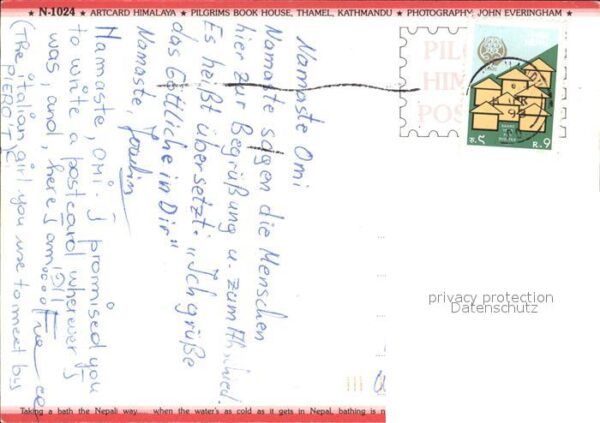 ★ N-1024 ★ ARTCARD HIMALAYA ★ PILGRIMS BOOK HOUSE, THAMEL, KATHMANDU ★ PHOTOGRAPHY: JOHN EVERINGHAM ★
Namaste Omi
Namaste sagen die Menschen
hier zur Begrüßung u. zum Abschied.
Es heißt übersetzt: "Ich grüße
das Göttliche in Dir"
Namaste,
Namaste, OMI. I promised you
to write a postcard wherever I
was, and, here I am
(The italian girl you use to meet by
PIERO T)
R. 9
privacy protection
Datenschutz
Taking a bath the Nepali way..... when the water's as cold as it gets in Nepal, bathing is n